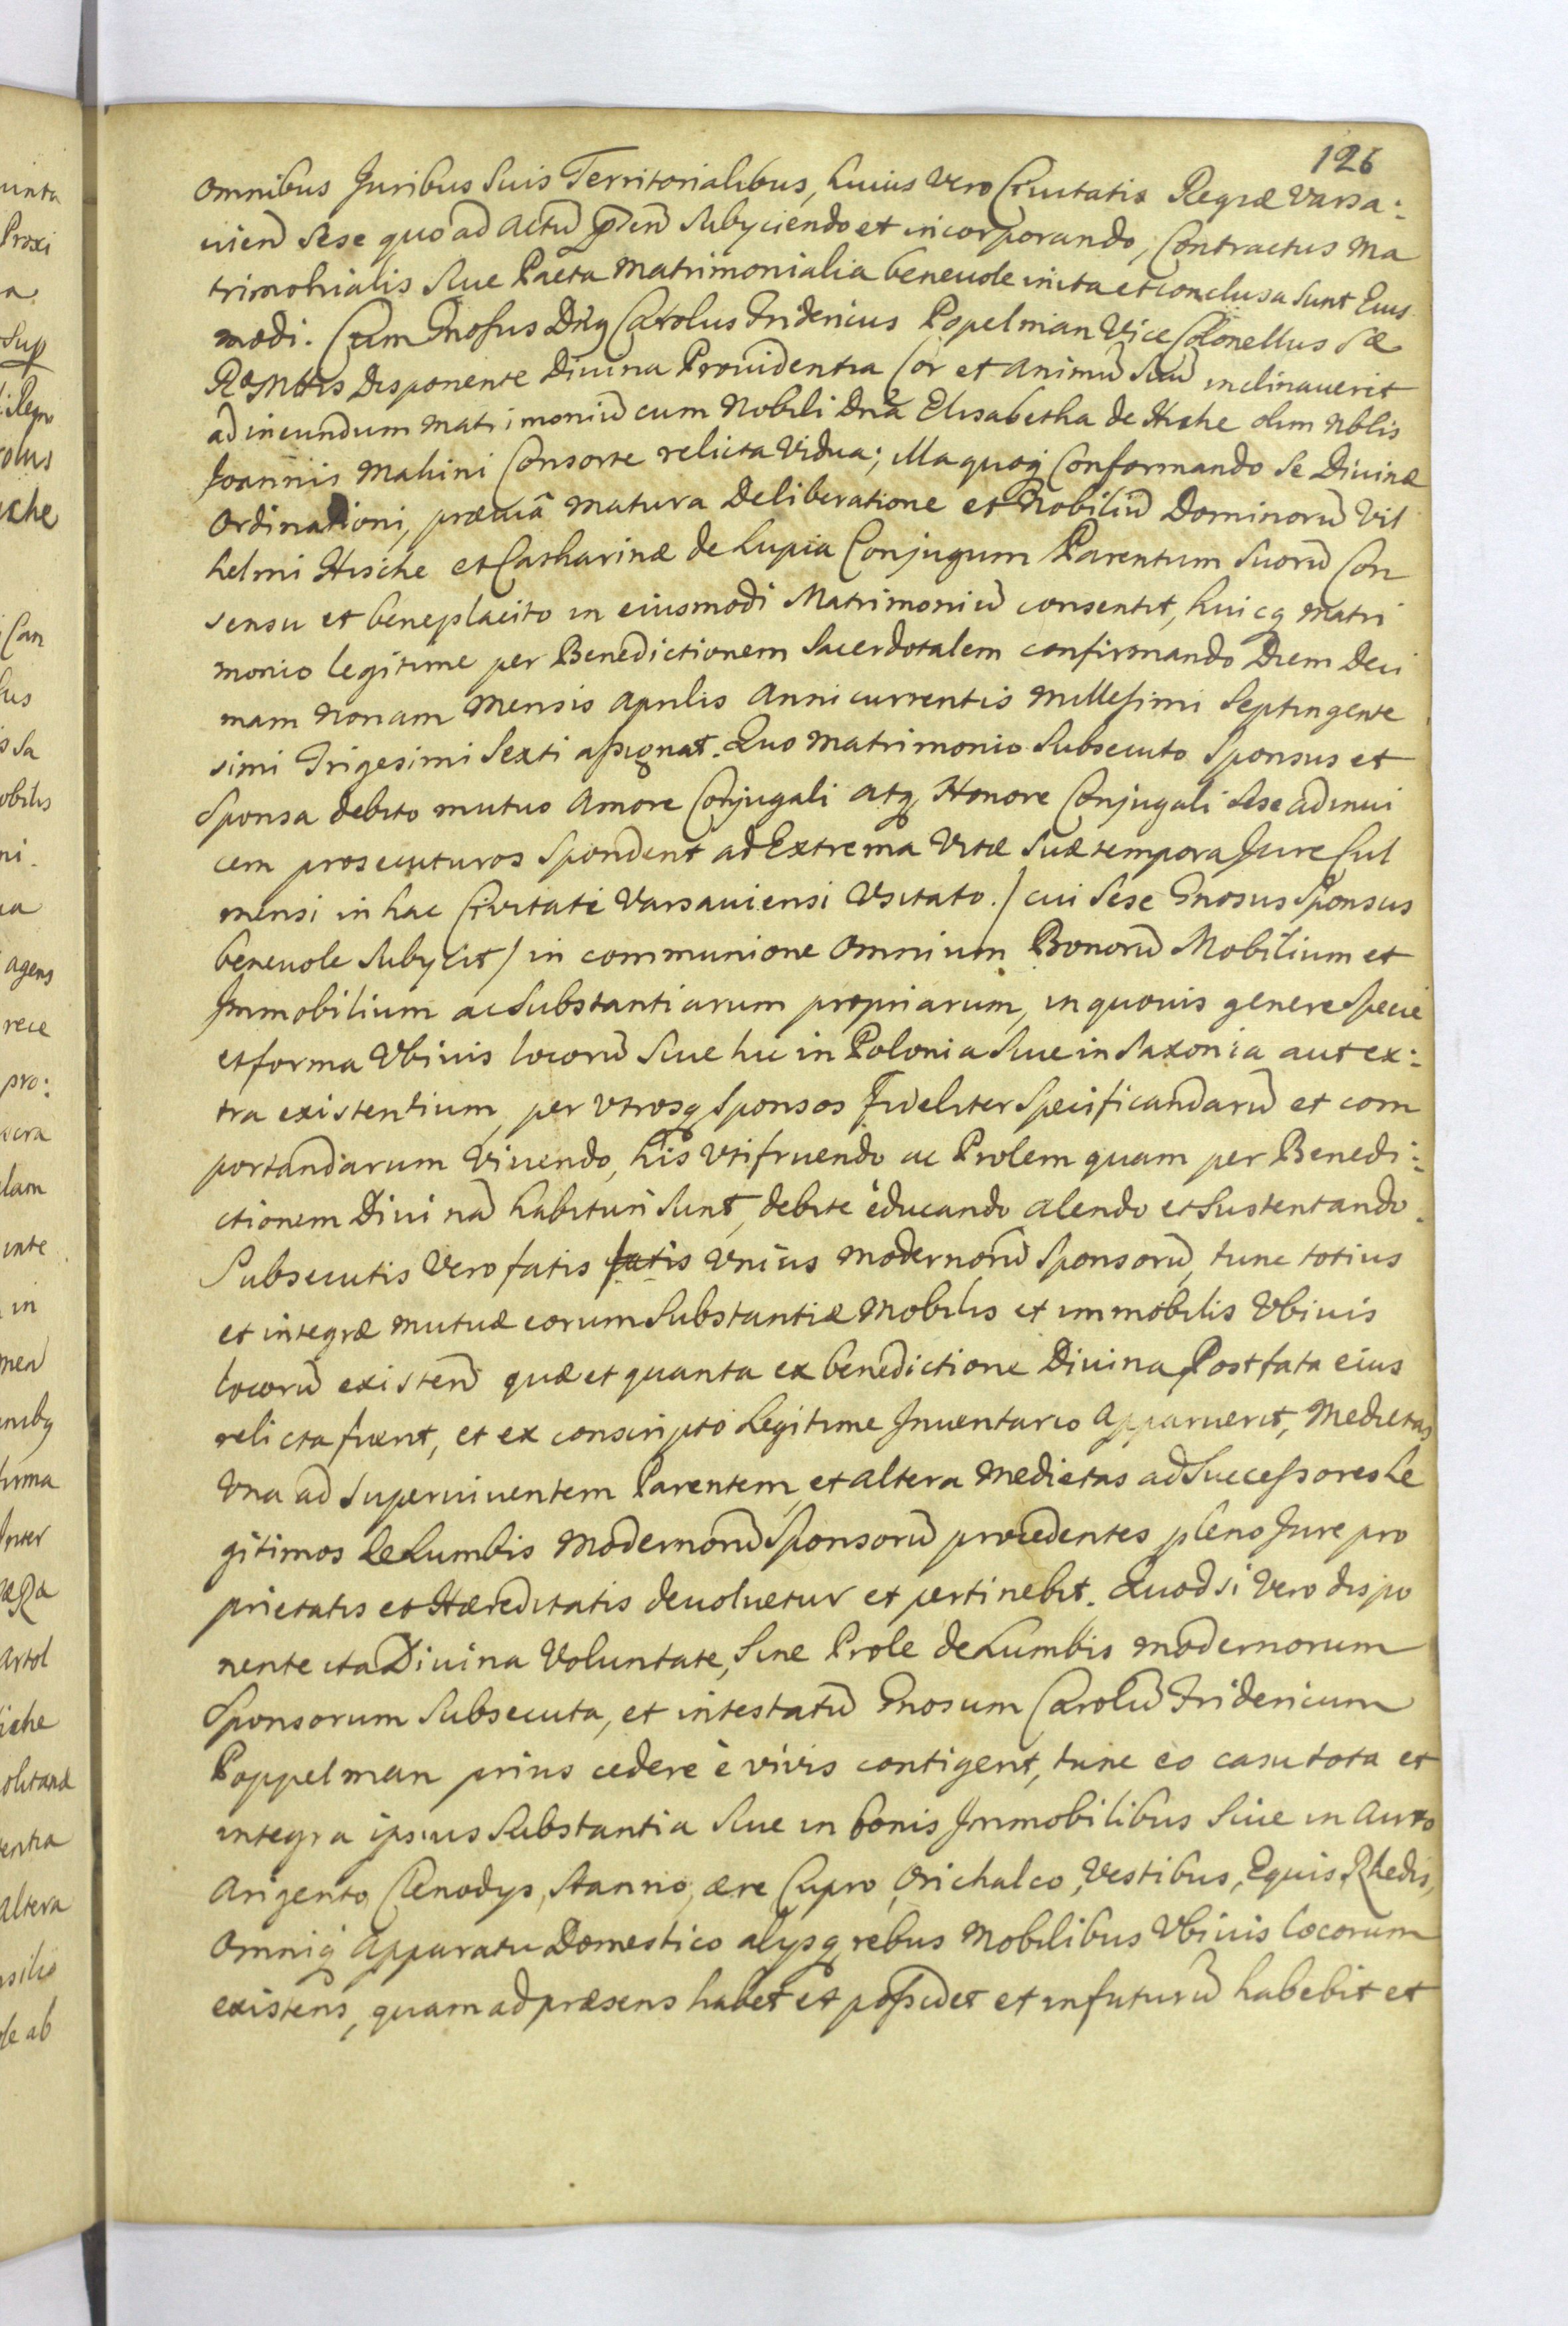 126
omnibus Juribus suis Territorialibus, huius vero Civitatis Regiæ Varsa:
vien̄ sese quo ad actū p̄sen̄ subyciendo et incorporando, Contractus Ma
trimonialis sive Pacta Matrimonialia benevole inita et conclusa sunt Eius
modi. Cum Gnosus Dn̄g Carolus Fridericus Popelman Vice Colonellus Sæ
Ræ Mttis disponente Divina Providentia Cor et animū suū inclinaverit
ad ineundum matrimoniū cum Nobili Dnā Elisabetha de Hiche olim Nblis
Joannis Mahini Consorte relicta Vidua; illa quoq Conformando se Divinæ
Ordinationi, præviâ matura Deliberatione et Nobiliū Dominorū Vil
helmi Hische et Catharinæ de Lupia Conjugum Parentum suorū Con
sensu et beneplacito in eiusmodi Matrimoniū consentit, huicq Matri
monio legitime per Benedictionem Sacerdotalem confirmando Diem Deci
mam nonam Mensis Aprilis anni currentis millesimi Septingente
simi Trigesimi Sexti assignat. Quo matrimonio subsecuto Sponsus et
Sponsa debito mutuo Amore Conjugali atq Honore Conjugali sese ad invi
cem prosecuturos Spondent ad Extrema Vitæ suæ tempora Jure Cul
mensi in hac Civitate Varsaviensi Usitato./ cui sese Gnosus Sponsus
benevole subycit/ in communione omnium Bonorū Mobilium et
Immobilium ac substantiarum propriarum, in quovis genere specie
et forma Ubivis locorū sive hic in Polonia sive in Saxonia aut ex:
tra existentium, per utrosq Sponsos fideliter specificandarū et com
portandarum Vivendo, his utifruendo ac Prolem quam per Benedi:
ctionem Divinā habituri sunt, debite educando alendo et sustentando.
Subsecutis Vero fatis fatis Unius modernorū Sponsorū, tunc totius
et integræ mutuæ eorum substantiæ Mobilis et immobilis Ubivis
locorū existen̄ quæ et quanta ex benedictione Divina Post fata eius
relicta fuerit, et ex conscripto Legitime Inventario apparuerit, Medietas
Una ad superviventem Parentem, et altera medietas ad Successores Le
gitimos de Lumbis Modernorū Sponsorū procedentes pleno Jure pro
prietatis et Hæreditatis devolvetur et pertinebit. Quod si Vero dispo
nente ita Divina Voluntate, sine Prole de Lumbis modernorum
Sponsorum subsecuta, et intestatū Gnosum Carolū Fridericum
Poppelman prius cedere è vivis contigerit, tunc eo casu tota et
integra ipsius substantia sive in bonis Immobilibus sive in Auro
Argento, Clenodys, stanno, ære Cupro, Orichalco, Vestibus, Equis, Rhedis,
omniq Apparatu Domestico alysq rebus Mobilibus Ubivis locorum
existens, quam ad præsens habet et possidet et in futurū habebit et